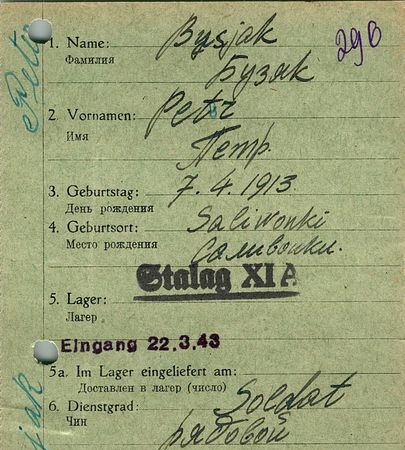 1. Name: Bysjak
Фамилия Бузяк
290
2. Vornamen: Petr
Имя Петр.
3. Geburtstag: 7.4.1913.
День рождения
4. Geburtsort: Saliwonki
Место рождения Саливонки.
Stalag XI A
5. Lager:
Лагерь
Eingang 22.3.43
5a. Im Lager eingeliefert am:
Доставлен в лагерь (число)
6. Dienstgrad: Soldat
Чин рядовой
Petr
jak